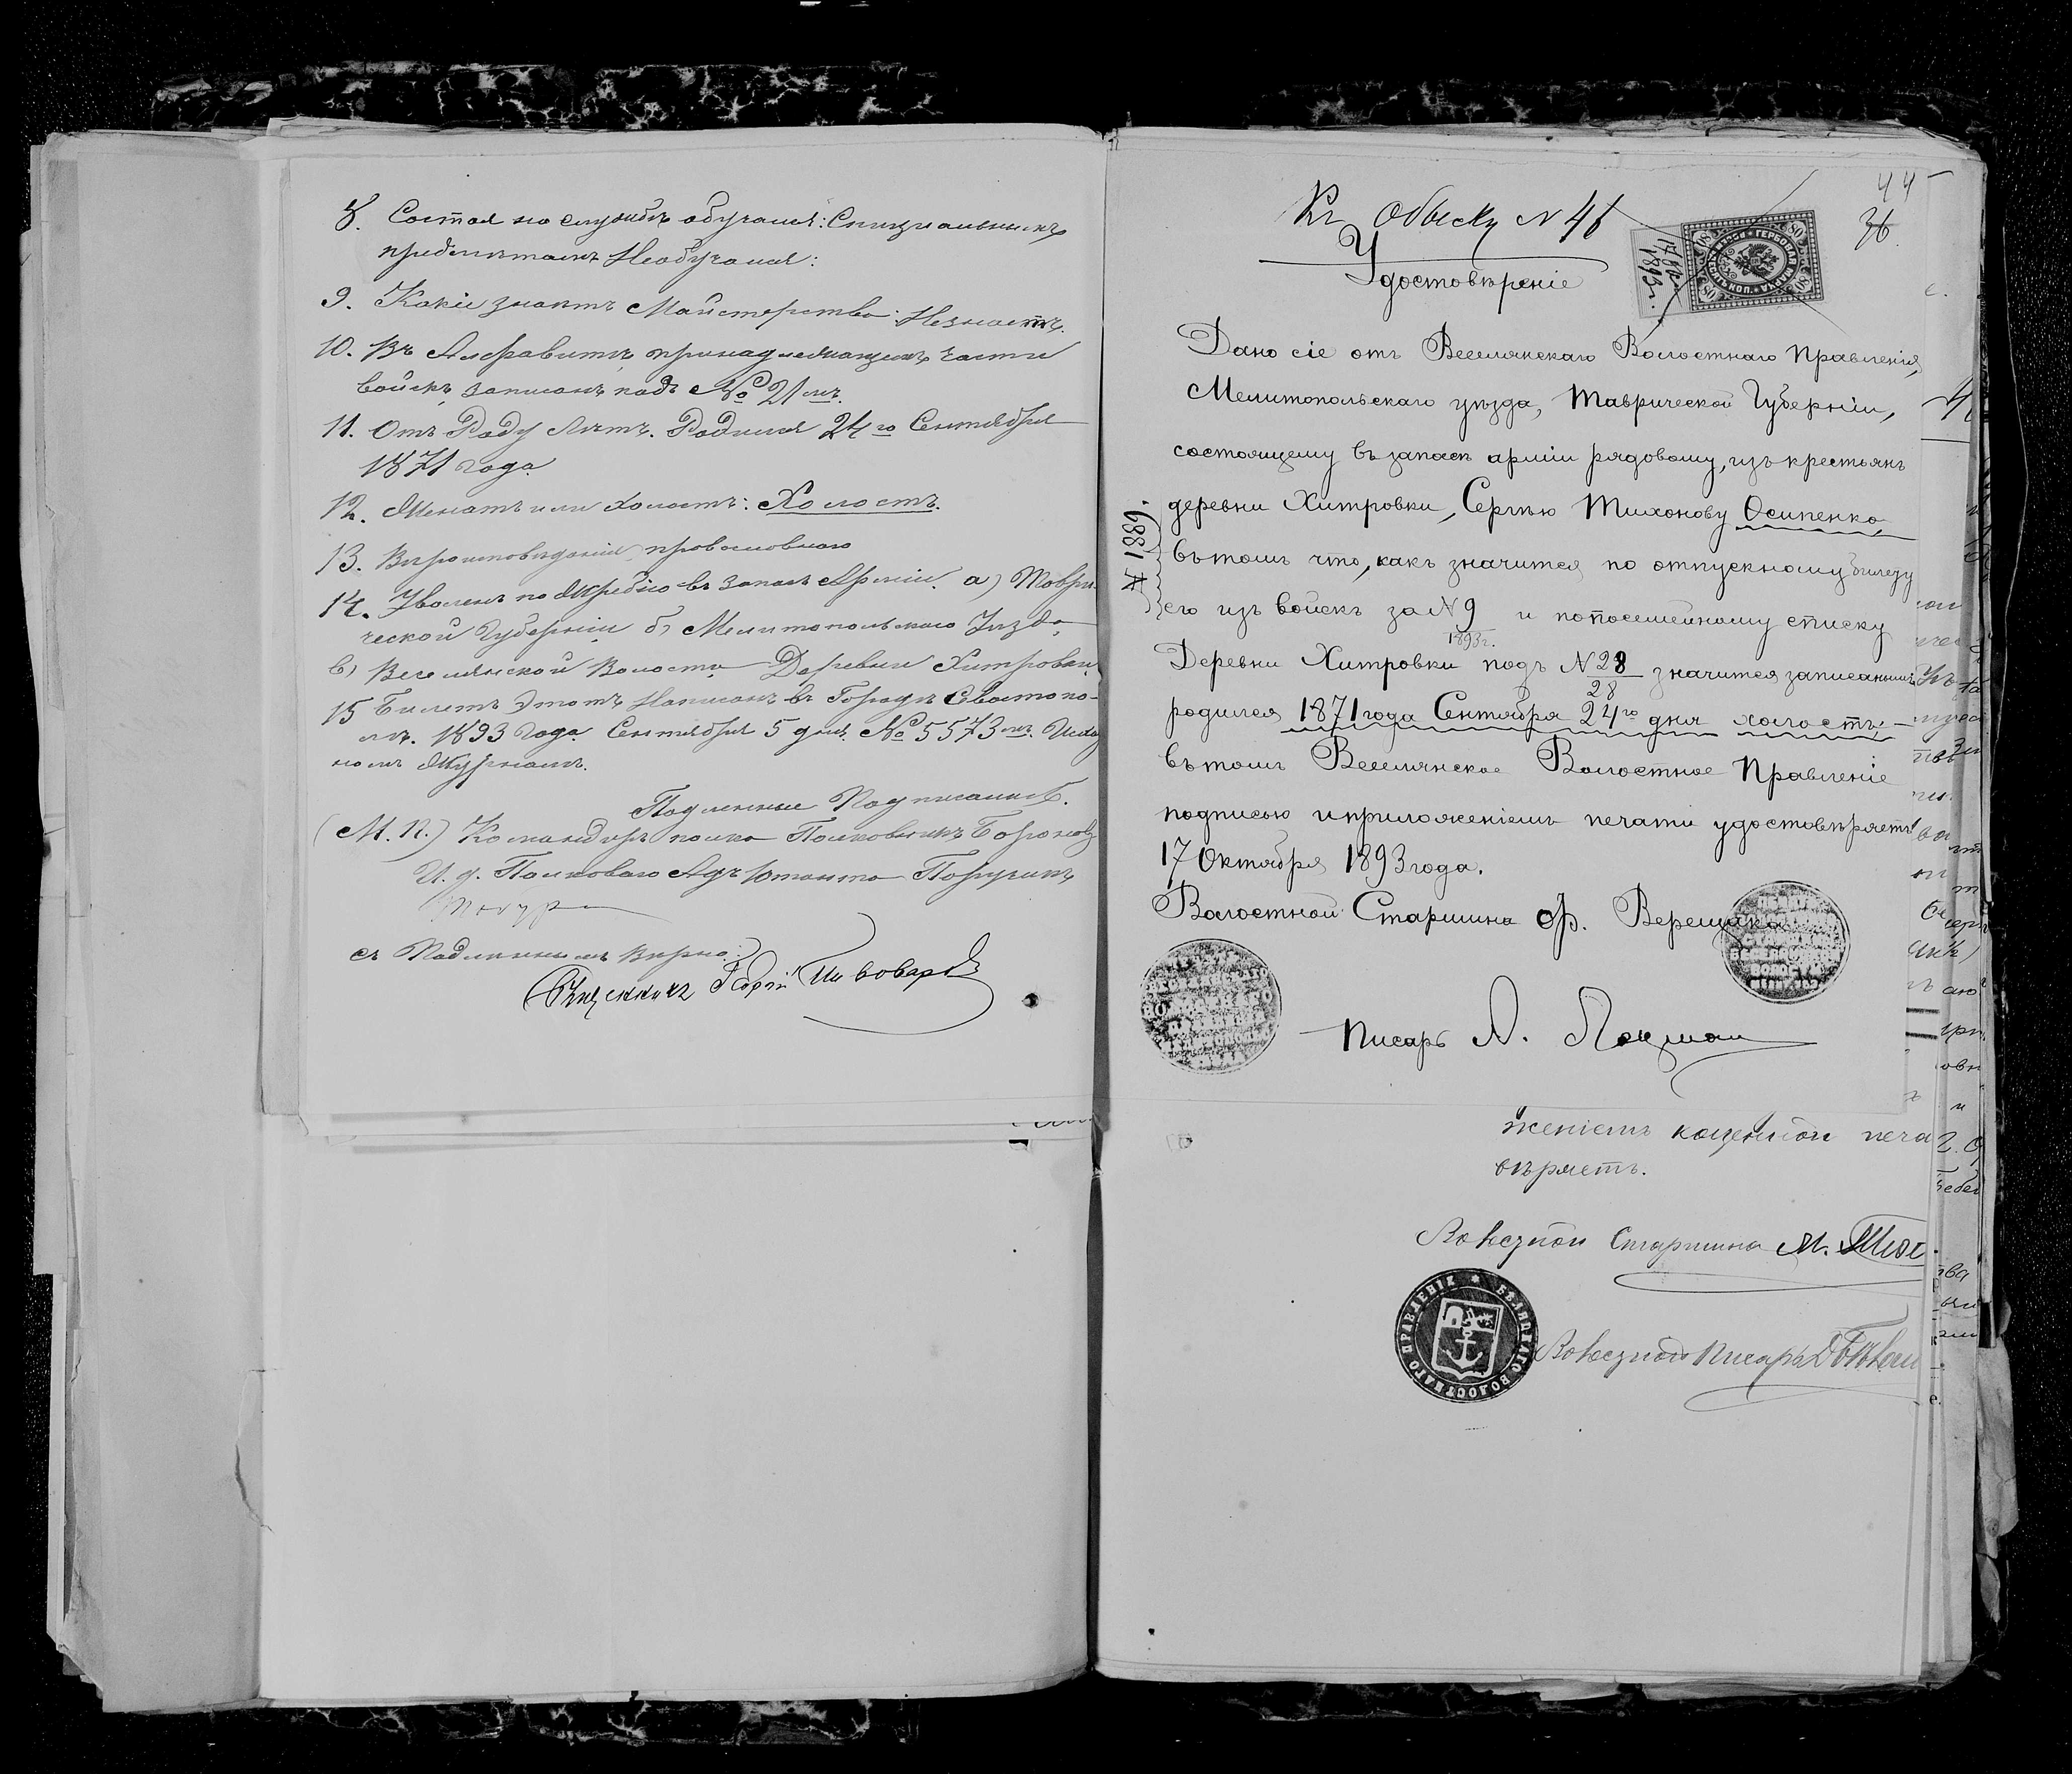 8. Состоя на службѣ обучался: Спиціальнымъ
предмѣтамъ Необучался:
9. Какіе знаетъ Майстерство: Незнаетъ.
10. Въ Алфавитѣ принадлежащемъ части
войскъ записанъ подъ № 21мъ.
11. Отъ Роду Лѣтъ. Родился 24го Сентября
1871 года
12. Женатъ или холостъ: Холостъ.
13. Вѣроисповѣданія православнаго
14. Уволенъ по жребію въ запасъ Арміи. а) Таври-
ческой Губерніи б) Мелитопольскаго Уѣзда
в) Веселянской Волости Деревни Хитровки
15 Билетъ Этотъ Написанъ въ Городѣ Севастопо-
лѣ. 1893 года Сентября 5 дня № 5573мъ.
номъ Журналѣ.
Подленные Подписали.
(М.П.) Командиръ полка Полковникъ
И. д. Полковаго Адъютанта Поручикъ
съ Подлиннымъ Вѣрно:
Пивоваровъ
44
36
Къ Обыску № 46
17 Окт.
1893 г.
ГЕРБОВАЯ МАРКА
80
Удостовѣреніе
Дано сіе отъ Веселянскаго Волостнаго Правленія,
Мелитопольскаго уѣзда, Таврической Губерніи,
состоящему въ запасѣ арміи рядовому, изъ крестьянъ
деревни Хитровки, Сергѣю Тихонову Осипенко
въ томъ что, какъ значится по отпускному билету
его изъ войскъ за № 9 и по посемейному списку
1893 г.
Деревни Хитровки подъ № 28 значится записаннымъ
28
родился 1871 года Сентября 24го дня холостъ;
въ томъ Веселянское Волостное Правленіе
подписью и приложеніемъ печати удостовѣряетъ
17 Октября 1893 года.
Волостной Старшина Ф. Верещака
Писарь
№ 1889.
женіемъ казенной печа
вѣряетъ.
Волостной Старшина М.
Волостной Писарь
ВОЛОСТНАГО ПРАВЛЕНІЯ